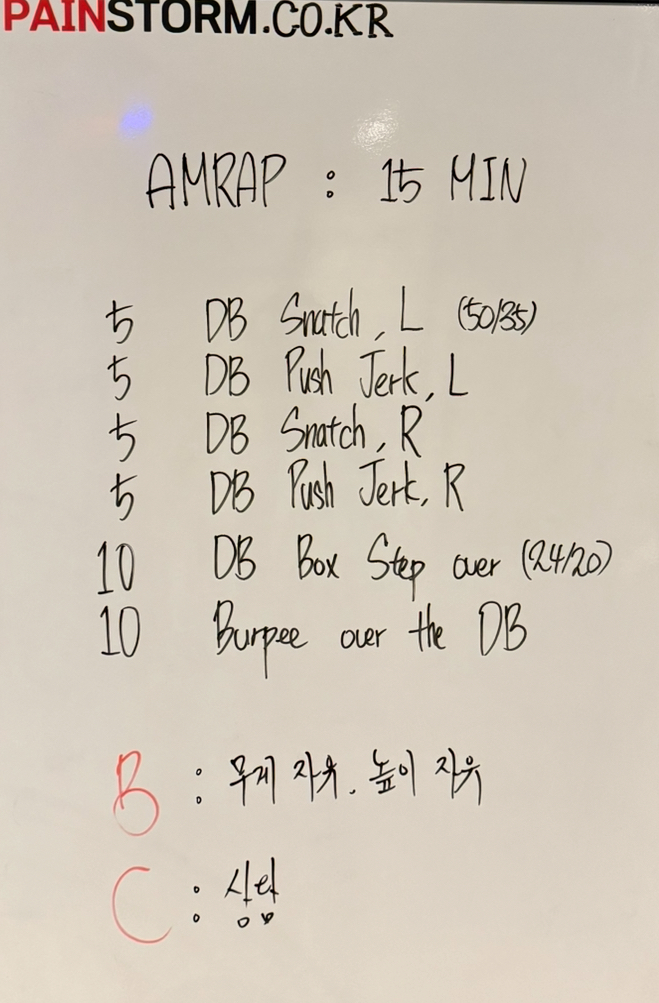 PAINSTORM.CO.KR
AMRAP : 15 MIN
5 DB Snatch, L (50/35)
5 DB Push Jerk, L
5 DB Snatch, R
5 DB Push Jerk, R
10 DB Box Step over (24/20)
10 Burpee over the DB
B : 무게 자유. 높이 자유
C : 상담